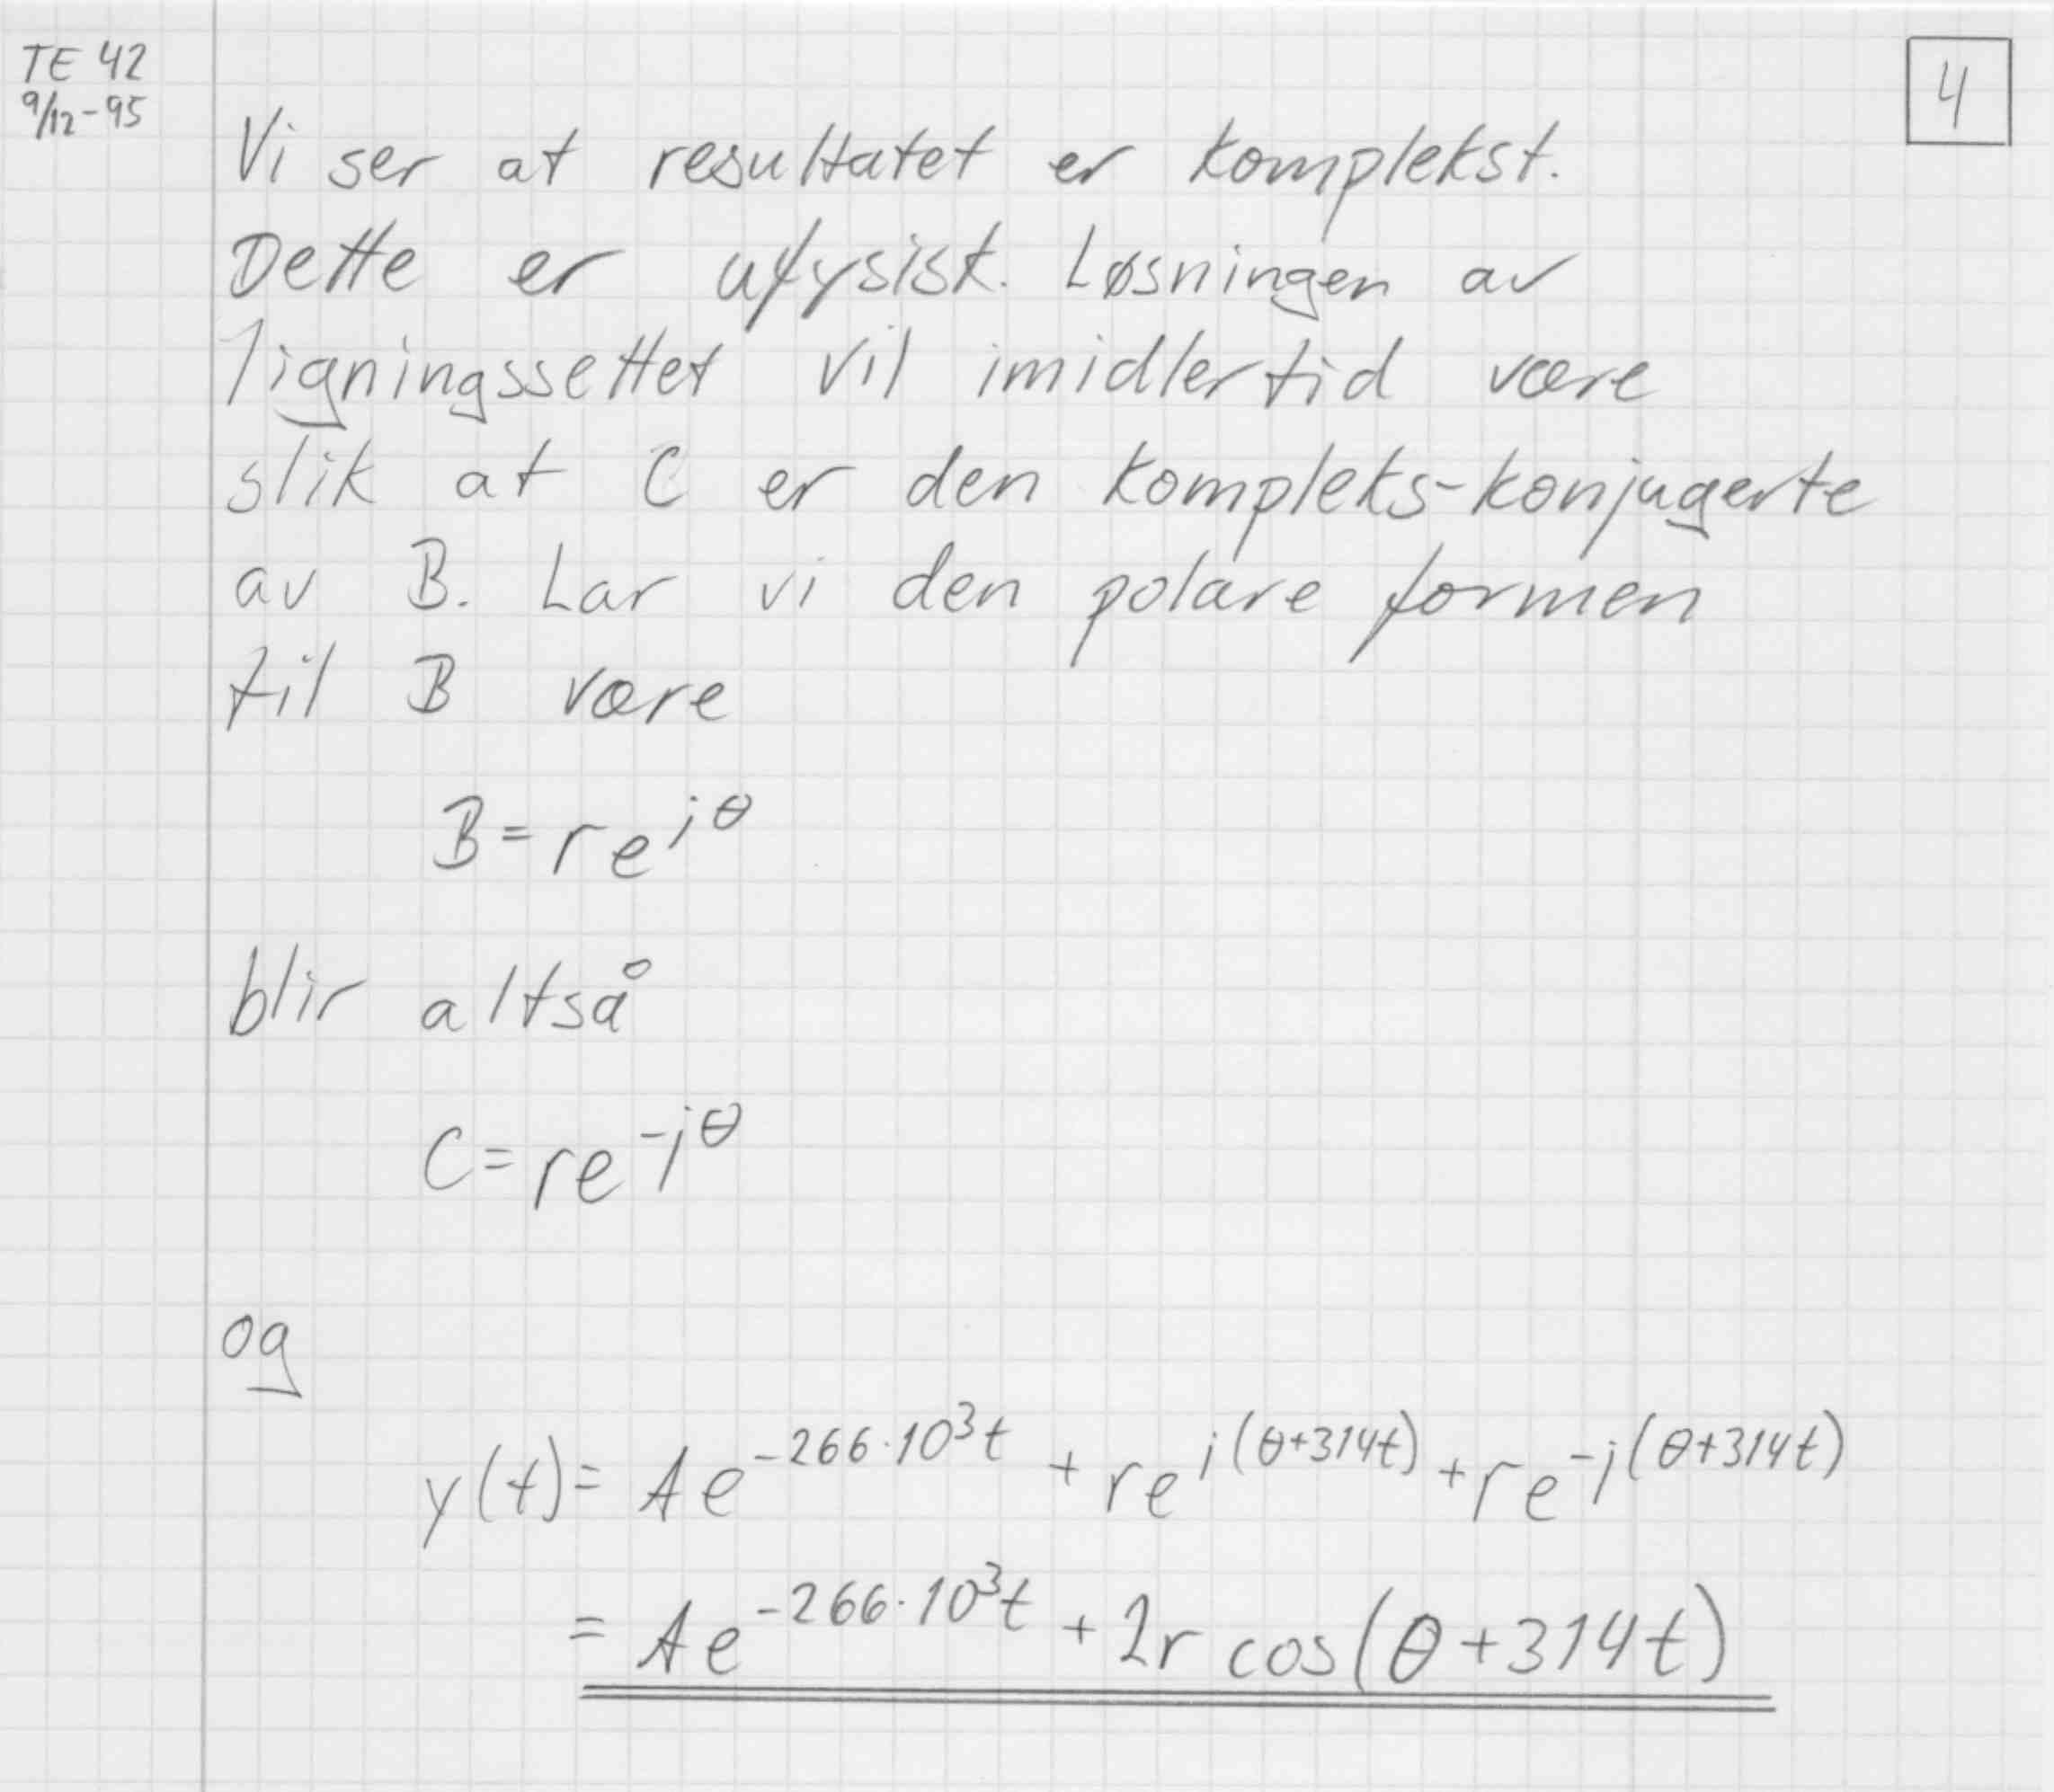 TE 42
9/12-95
4
Vi ser at resultatet er komplekst.
Dette er ufysisk. Løsningen av
ligningssettet vil imidlertid være
slik at C er den kompleks-konjugerte
av B. Lar vi den polare formen
til B være
B = re^{jθ}
blir altså
C = re^{-jθ}
og
y(t) = Ae^{-266·10^3t} + re^{j(θ+314t)} + re^{-j(θ+314t)}
= Ae^{-266·10^3t} + 2r cos(θ+314t)